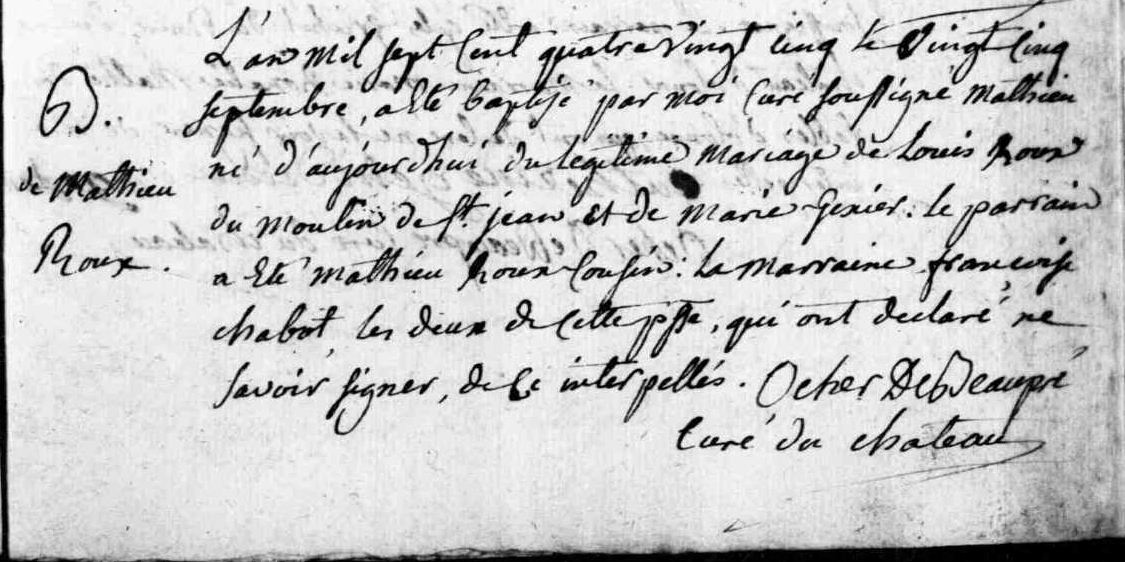 B.
de Mathieu
Roux.
L'an mil sept cent quatre vingt cinq le vingt cinq
septembre, a été baptisé par moi curé soussigné mathieu
né d'aujourdhui du legitime mariage de Louis Roux
du moulin de st. jean et de marie Genier. le parrain
a été mathieu Roux cousin. la marraine francoise
chabot les deux de cette psse, qui ont declaré ne
savoir signer, de ce interpellés. Ocher DeBeaupré
curé du chateau